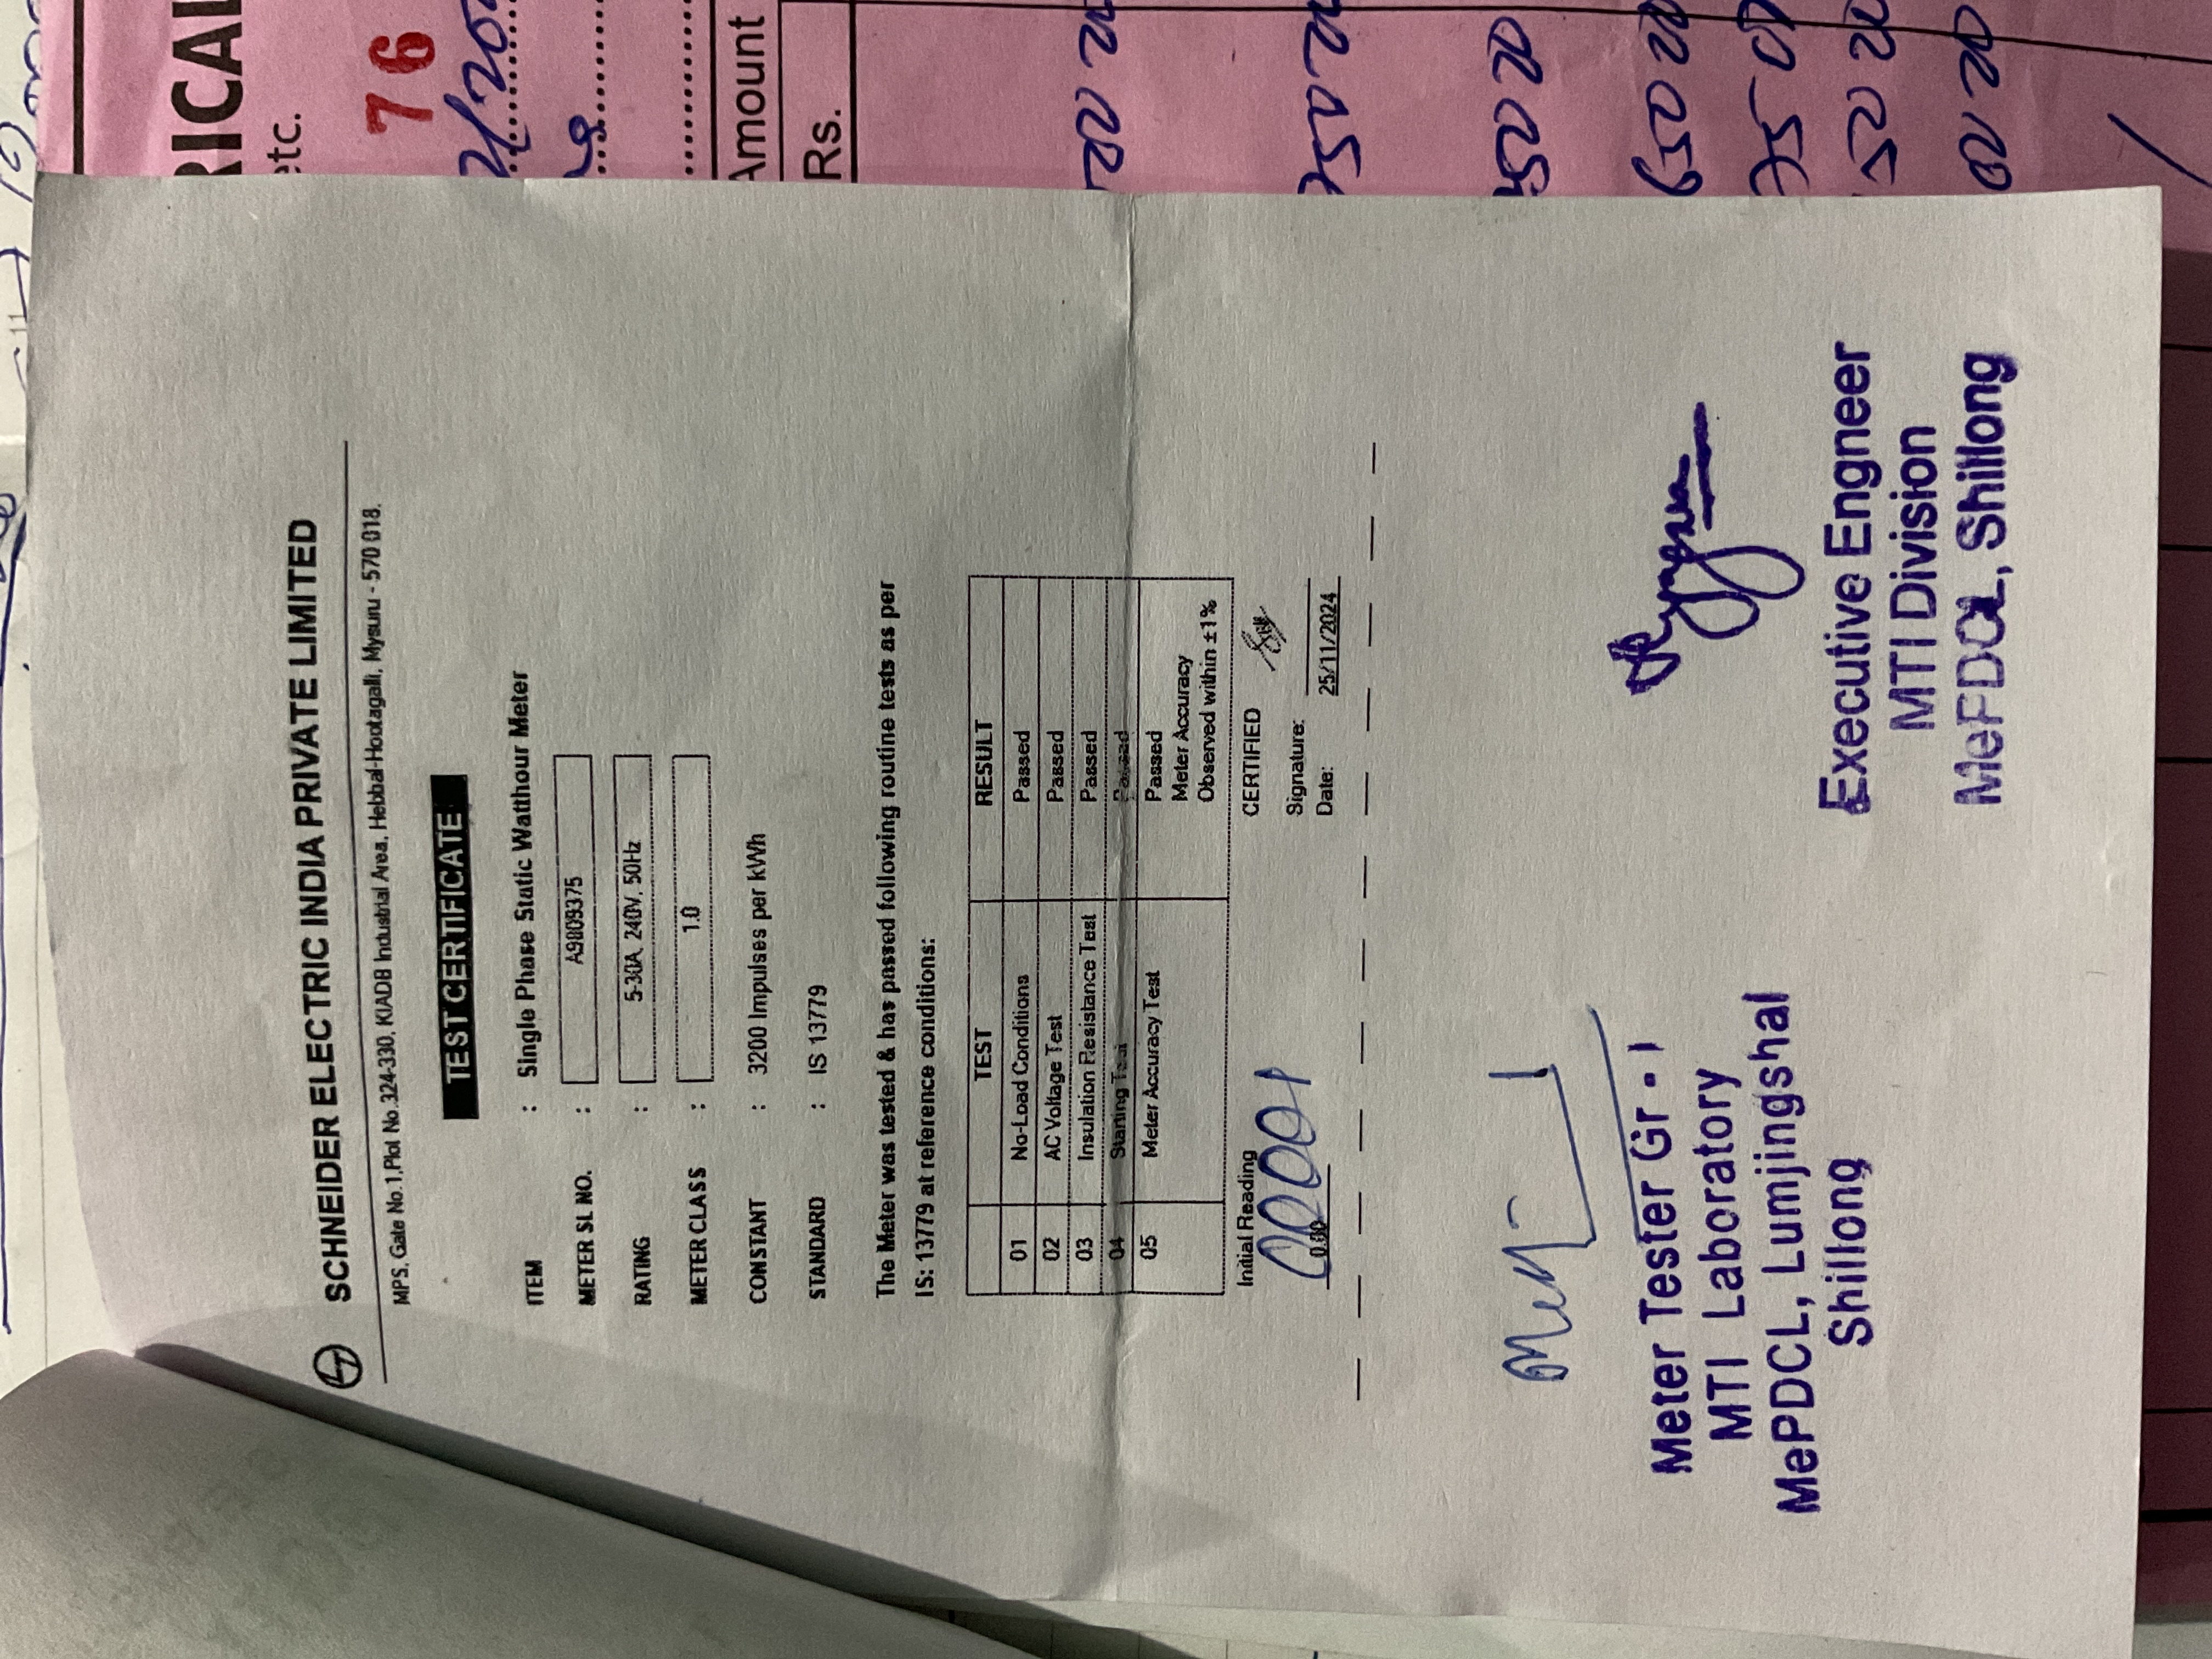 RICAL
etc.
76
Amount
Rs.
SCHNEIDER ELECTRIC INDIA PRIVATE LIMITED
MPS, Gate No.1,Plot No.324-330, KIADB Industrial Area, Hebbal-Hootagalli, Mysuru - 570 018.
TEST CERTIFICATE
ITEM : Single Phase Static Watthour Meter
METER SL NO. : A9809375
RATING : 5-30A, 240V, 50Hz
METER CLASS : 1.0
CONSTANT : 3200 Impulses per kWh
STANDARD : IS 13779
The Meter was tested & has passed following routine tests as per
IS: 13779 at reference conditions:
TEST RESULT
01 No-Load Conditions Passed
02 AC Voltage Test Passed
03 Insulation Resistance Test Passed
04 Starting Test Passed
05 Meter Accuracy Test Passed
Meter Accuracy
Observed within ±1%
Initial Reading CERTIFIED
0.00
Signature:
Date: 25/11/2024
Meter Tester Gr - I
MTI Laboratory
MePDCL, Lumjingshai
Shillong
Executive Engneer
MTI Division
MePDCL, Shillong